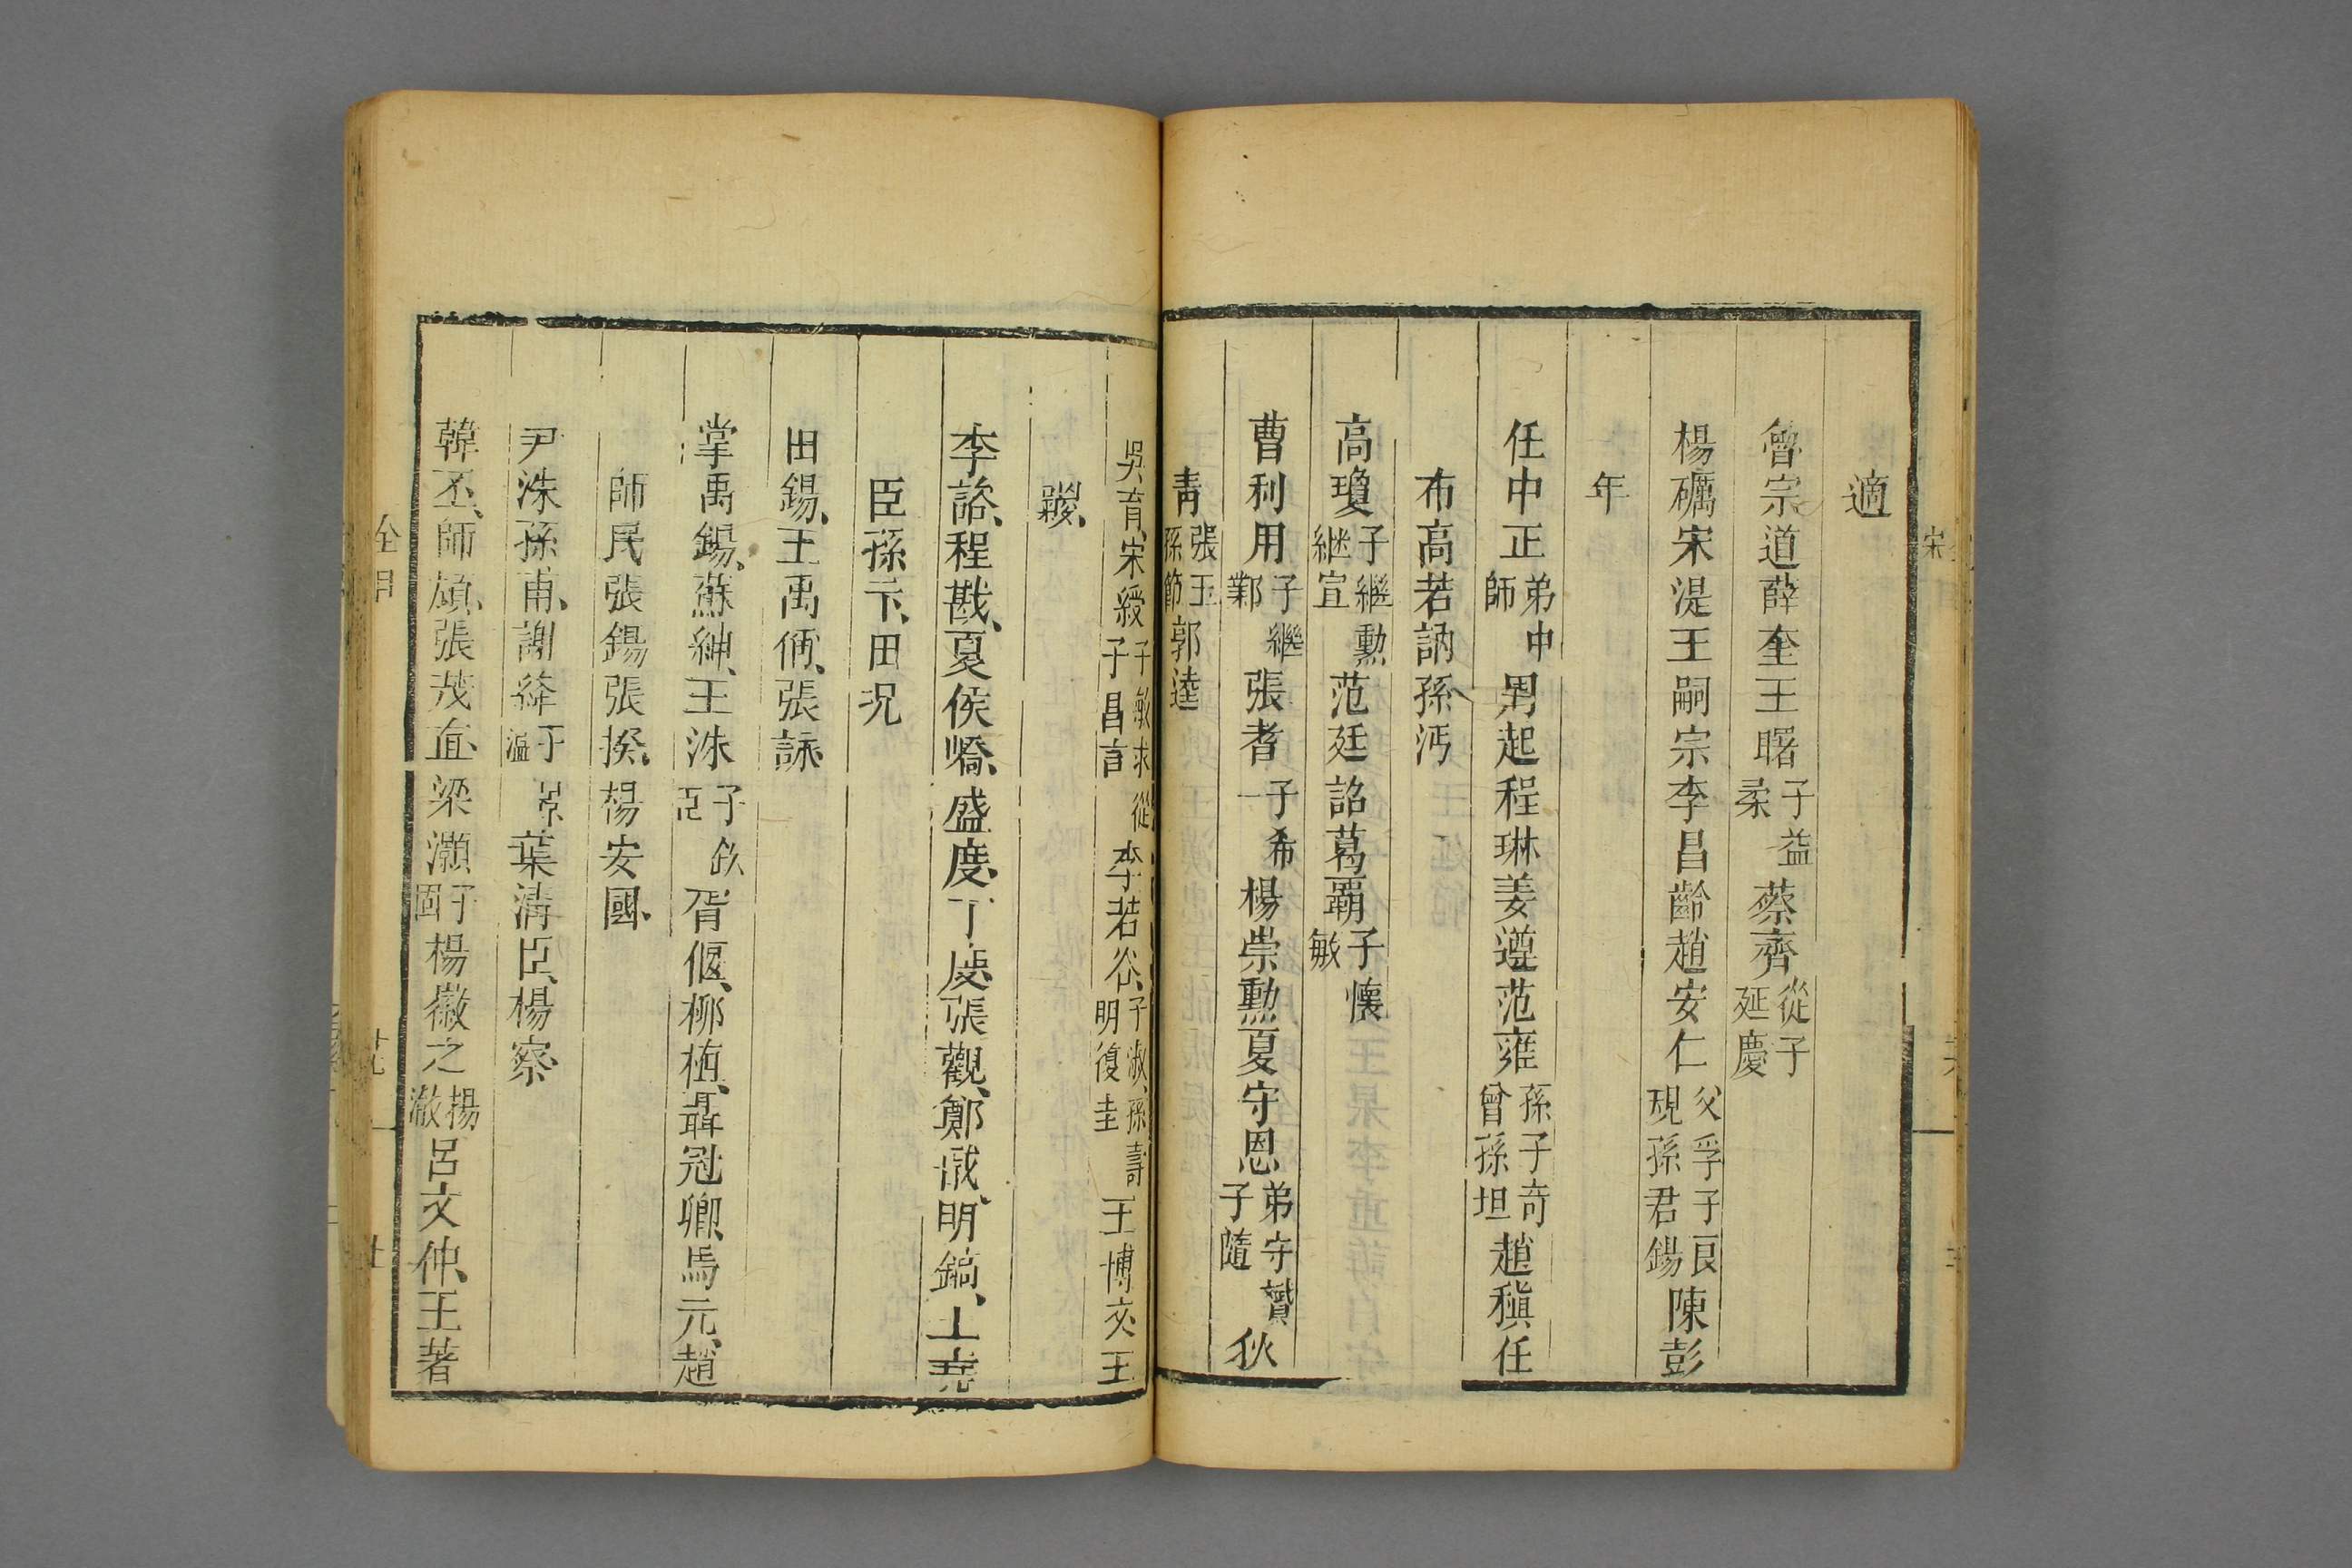 適
魯宗道薛奎王曙子益柔蔡齊從子延慶
楊礪宋湜王嗣宗李昌齡趙安仁父孚子良硯孫君錫陳彭
年
任中正弟中師男起程琳姜遵范雍孫子奇曾孫坦趙稹任
布高若訥孫沔
高瓊子繼勳継宣范廷詔葛覇子懷敏
曹利用子繼鄴張耆子希一楊崇勲夏守恩弟守贇子隨狄
青張玉孫節郭逵
吳育、宋綬子敏求從子昌言李若谷、子淑、孫壽明復圭王博文王
鬷、
李諮、程戡、夏侯嶠、盛度、丁度、張觀、鄭戩、明鎬、王堯
臣孫抃、田況
田錫、王禹偁、張詠
掌禹錫、蘇紳、王洙子欽臣胥偃、柳植、聶冠卿、馬元、趙
師民張錫張揆、楊安國、
尹洙孫甫、謝絳子景溫葉清臣、楊察
韓丕、師頏、張茂直、梁灝子固楊徽之楊澈呂文仲、王著